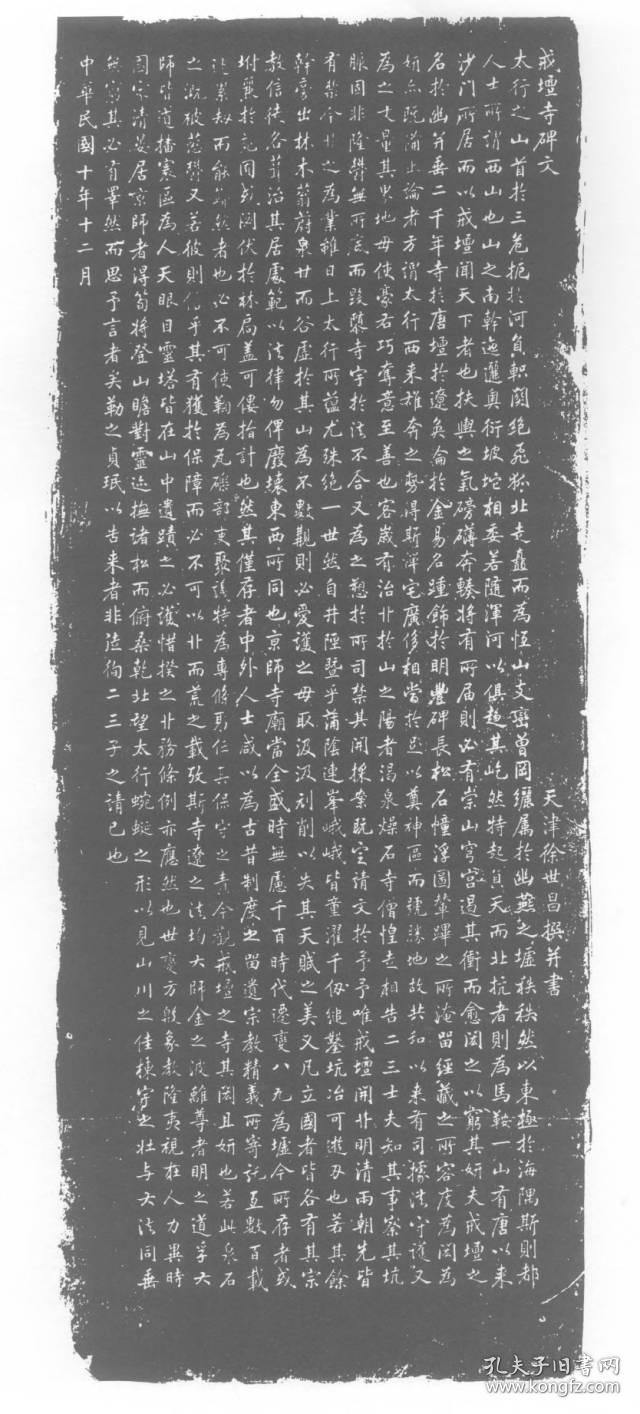 戒壇寺碑文
天津徐世昌撰并書
太行之山首於三危扼於河負軹關絕飛狐北走矗而為恆山支巒曾岡纚属於幽燕之墟秩秩然以東極於海隅斯則都
人士所謂西山也山之南幹迤邐奧衍坡坨相委若隨渾河以俱趨其屹然特起負天而北抗者則為馬鞍一山有唐以來
沙門所居而以戒壇聞天下者也扶輿之氣磅礴奔輳將有所屆則必有崇山穹宮遏其衝而愈閟之以窮其妍夫戒壇之
名於幽并垂二千年寺於唐壇於遼奐侖於金易名踵飾於明豐碑長松石幢浮圖輦蹕之所淹留經藏之所容庋為閎為
妍亦既備上論者方謂太行西來雄奔之勢得斯渾宅廣侈相當於是以奠神區而號勝地故共和以來有司據法守護又
為之丈量其界地毋使豪右巧奪意至善也客歲有治廾於山之陽者渴泉燥石寺僧惶走相告二三士夫知其事察其坑
脹固非隆礬無所底而毀棄寺宇於法不合又為之懇於所司禁其開採案既定請文於予予唯戒壇開廾明清兩朝先皆
有禁今廾之為業雖日上太行所蘊尤殊絕一世然自井陘暨乎蒲陰連峯峨峨皆童濯千仭絕壑坑冶可遊刃也若其餘
幹旁出林木蓊蔚泉甘而谷虛於其山為不數觀則必愛護之毋取汲汲刓削以失其天賦之美又凡立國者皆各有其宗
教信徒各葺治其居處範以法律勿俾廢壞東西所同也京師寺廟當全盛時無慮千百時代遷變八九為墟今所存者或
坿麗於記問或閟伏於林扃蓋可僂指計也然其僅存者中外人士咸以為古昔制度之留遺宗教精義所寄託亙數百載
之業劫而能巋然者也必不可使鞠為瓦礫部吏聚議特為專條勇仁其保守之責今觀戒壇之寺其閎且妍也若此泉石
之溉被蒸鬱又若彼則信乎其有獲於保障而必不可以廾而荒之載攷斯寺遼之法均大師金之波離尊者明之道孚大
師皆道播寰區為人天眼目靈塔皆在山中遺蹟之必護惜揆之廾務條例亦應然也世變方殷象教隆夷視在人力異時
國家清晏居京師者得筍將登山瞻對靈迹撫諸松而俯桑乾北望太行蜿蜒之形以見山川之佳棟宇之壯与大法同垂
無窮其必有睪然而思予言者矣勒之貞珉以告來者非徒徇二三子之請已也
中華民國十年十二月
孔夫子旧书网
www.kongfz.com